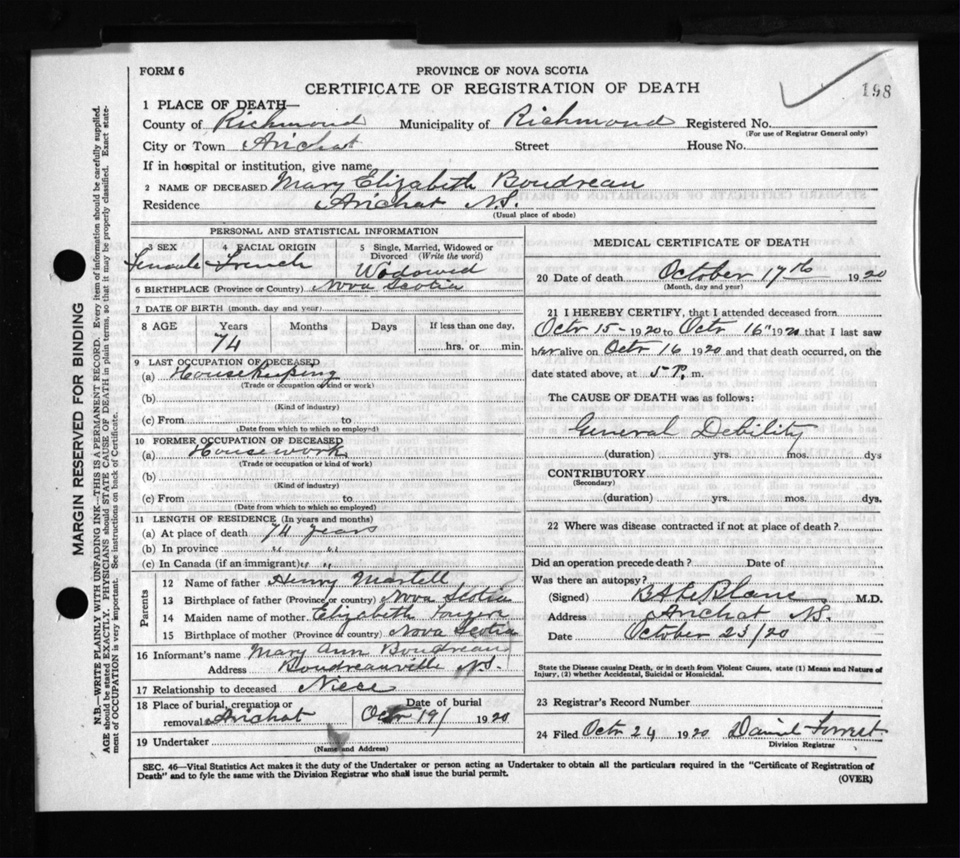 FORM 6
PROVINCE OF NOVA SCOTIA
CERTIFICATE OF REGISTRATION OF DEATH
198
1 PLACE OF DEATH—
County of Richmond Municipality of Richmond Registered No.
(For use of Registrar General only)
City or Town Arichat Street House No.
If in hospital or institution, give name
2 NAME OF DECEASED Mary Elizabeth Boudreau
Residence Arichat N.S.
(Usual place of abode)
PERSONAL AND STATISTICAL INFORMATION
3 SEX 4 RACIAL ORIGIN 5 Single, Married, Widowed or Divorced (Write the word)
Female French Widowed
6 BIRTHPLACE (Province or Country) Nova Scotia
7 DATE OF BIRTH (month, day and year)
8 AGE Years Months Days If less than one day,
74 hrs. or min.
9 LAST OCCUPATION OF DECEASED
(a) Housekeeping
(Trade or occupation or kind or work)
(b)
(Kind of industry)
(c) From to
(Date from which to which so employed)
10 FORMER OCCUPATION OF DECEASED
(a) Housework
(Trade or occupation or kind of work)
(b)
(Kind of industry)
(c) From to
(Date from which to which so employed)
11 LENGTH OF RESIDENCE (In years and months)
(a) At place of death 74 years
(b) In province " "
(c) In Canada (if an immigrant) " "
Parents
12 Name of father Henry Martell
13 Birthplace of father (Province or country) Nova Scotia
14 Maiden name of mother Elizabeth
15 Birthplace of mother (Province or country) Nova Scotia
16 Informant's name Mary Ann Boudreau
Address Boudreauville N.S.
17 Relationship to deceased Niece
18 Place of burial, cremation or removal Arichat Date of burial Octr 19/ 1920
19 Undertaker
(Name and Address)
MEDICAL CERTIFICATE OF DEATH
20 Date of death October 17th 1920
(Month, day and year)
21 I HEREBY CERTIFY, that I attended deceased from
Octr 15 - 1920 to Octr 16" 1920 that I last saw
her alive on Octr 16 1920 and that death occurred, on the
date stated above, at 5 P. m.
The CAUSE OF DEATH was as follows:
General Debility
(duration) yrs. mos. dys
CONTRIBUTORY
(Secondary)
(duration) yrs. mos. dys.
22 Where was disease contracted if not at place of death?
Did an operation precede death? Date of
Was there an autopsy?
(Signed) LeBlanc M.D.
Address Arichat N.S.
Date October 23/20
State the Disease causing Death, or in death from Violent Causes, state (1) Means and Nature of
Injury, (2) whether Accidental, Suicidal or Homicidal.
23 Registrar's Record Number
24 Filed Octr 24 1920 Daniel Forrest
Division Registrar
SEC. 46—Vital Statistics Act makes it the duty of the Undertaker or person acting as Undertaker to obtain all the particulars required in the "Certificate of Registration of
Death" and to fyle the same with the Division Registrar who shall issue the burial permit.
(OVER)
MARGIN RESERVED FOR BINDING
N.B.—WRITE PLAINLY WITH UNFADING INK—THIS IS A PERMANENT RECORD. Every item of information should be carefully supplied.
AGE should be stated EXACTLY. PHYSICIANS should STATE CAUSE OF DEATH in plain terms, so that it may be properly classified. Exact state-
ment of OCCUPATION is very important. See instructions on back of Certificate.